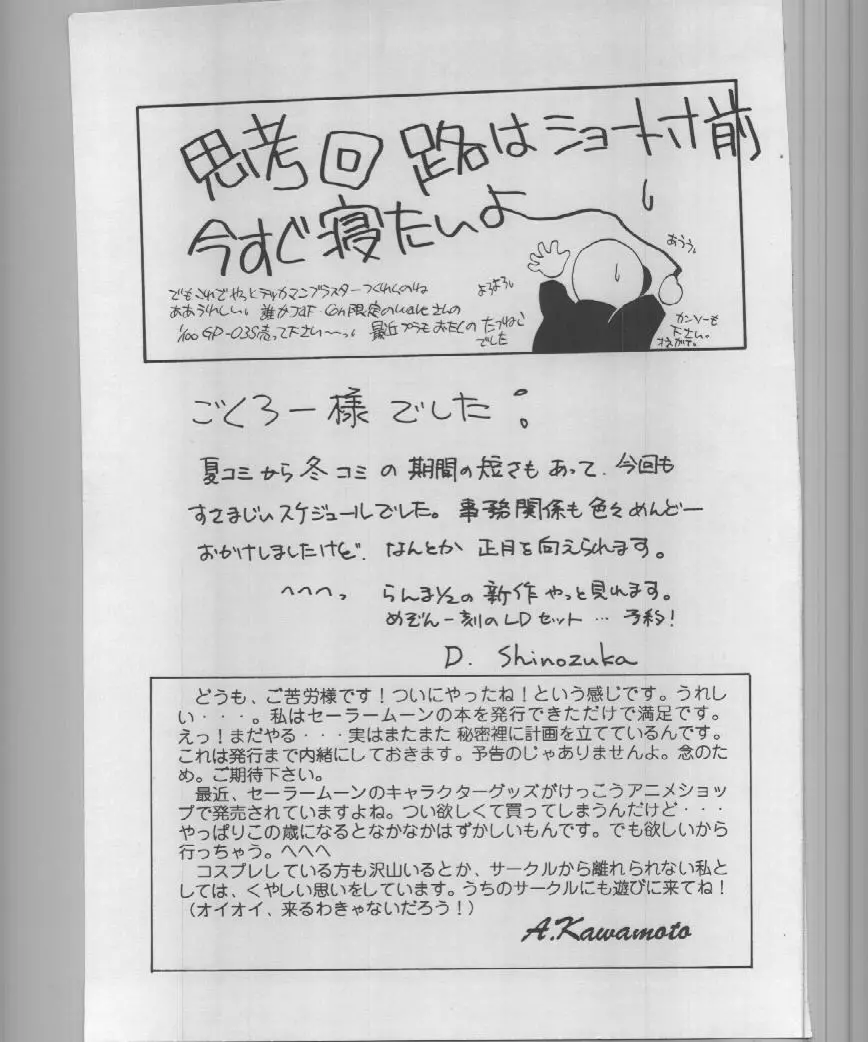 思考回路はショート寸前
今すぐ寝たいよ
おうう。
よろよろ。
でもこれでやっとテッカマンブラスターつくれんのね
ああうれしい。誰かJAF・Con限定のwaveさんの
1/100 GP-03S売って下さい〜っ。最近プラモおたくの
でした
カンソーも
下さい。
ごくろー様でした。
夏コミから冬コミの期間の短さもあって、今回も
すさまじいスケジュールでした。事務関係も色々めんどー
おかけしましたけど、なんとか正月を向えられます。
へへへっ らんま1/2の新作やっと見れます。
めぞん一刻のLDセット…予約!
D. Shinozuka
どうも、ご苦労様です!ついにやったね!という感じです。うれし
い・・・。私はセーラームーンの本を発行できただけで満足です。
えっ!まだやる・・・実はまたまた 秘密裡に計画を立てているんです。
これは発行まで内緒にしておきます。予告のじゃありませんよ。念のた
め。ご期待下さい。
最近、セーラームーンのキャラクターグッズがけっこうアニメショッ
プで発売されていますよね。つい欲しくて買ってしまうんだけど・・・
やっぱりこの歳になるとなかなかはずかしいもんです。でも欲しいから
行っちゃう。へへへ
コスプレしている方も沢山いるとか、サークルから離れられない私と
しては、くやしい思いをしています。うちのサークルにも遊びに来てね!
(オイオイ、来るわきゃないだろう!)
A.Kawamoto